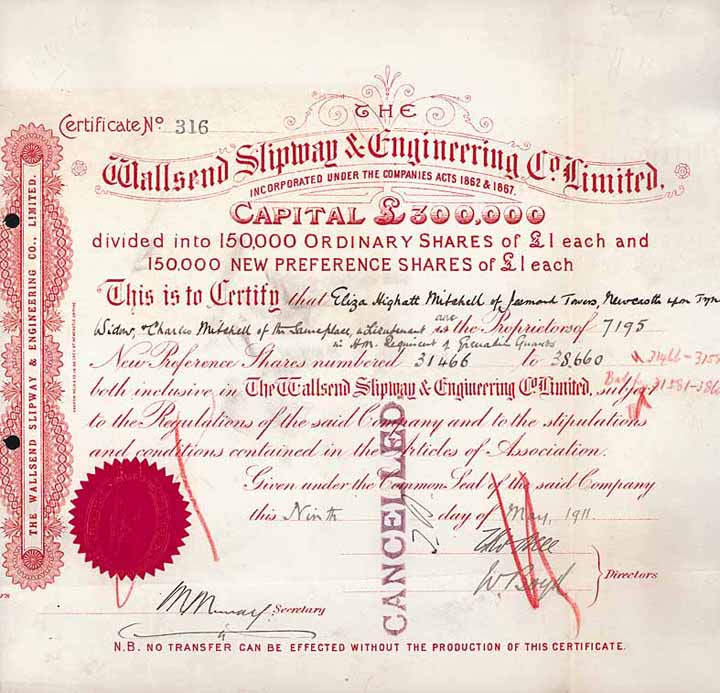 Certificate No. 316
THE
Wallsend Slipway & Engineering Co. Limited.
INCORPORATED UNDER THE COMPANIES ACTS 1862 & 1867.
CAPITAL £300,000
divided into 150,000 ORDINARY SHARES of £1 each and
150.000 NEW PREFERENCE SHARES of £1 each
This is to Certify that Eliza Highatt Mitchell of Jesmond Towers, Newcastle upon Tyn
Widow, & Charles Mitchell of the same place, a Lieutenant are the Proprietors of 7195
in H.M. Regiment of Grenadier Guards
New Preference Shares numbered 31466 to 38,660
31466-3158
both inclusive in The Wallsend Slipway & Engineering Co. Limited, subject
31581-386
to the Regulations of the said Company and to the stipulations
and conditions contained in the Articles of Association.
Given under the Common Seal of the said Company
this Ninth day of May, 1911.
W. Boyd
Directors
Secretary
N.B. NO TRANSFER CAN BE EFFECTED WITHOUT THE PRODUCTION OF THIS CERTIFICATE.
CANCELLED
THE WALLSEND SLIPWAY & ENGINEERING CO., LIMITED.